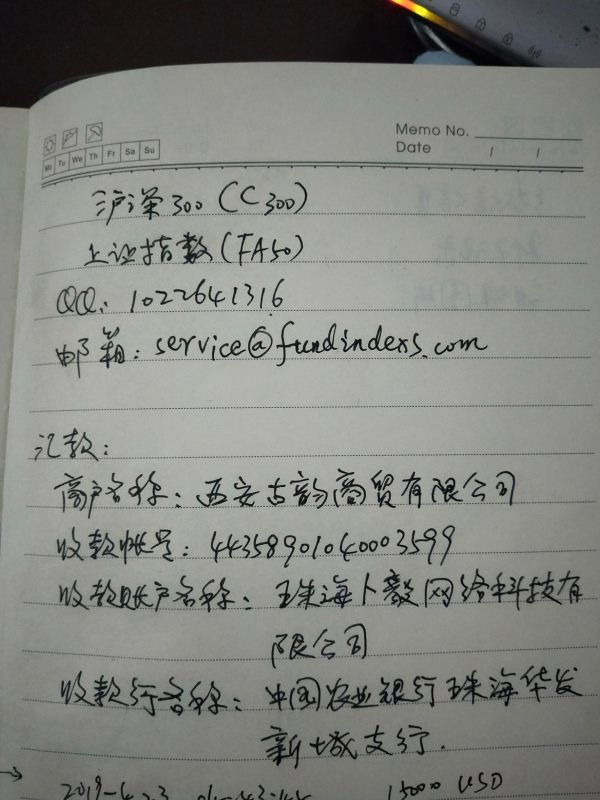 Memo No.
Mo Tu We Th Fr Sa Su
Date / /
沪深300(C300)
上证指数(FA50)
QQ: 1022641316
邮箱: service@fundindexs.com
汇款:
商户名称: 西安古韵商贸有限公司
收款帐号: 44358901040003599
收款账户名称: 珠海卜毅网络科技有
限公司
收款行名称: 中国农业银行珠海华发
新城支行.
2019-4-23 15000 USD